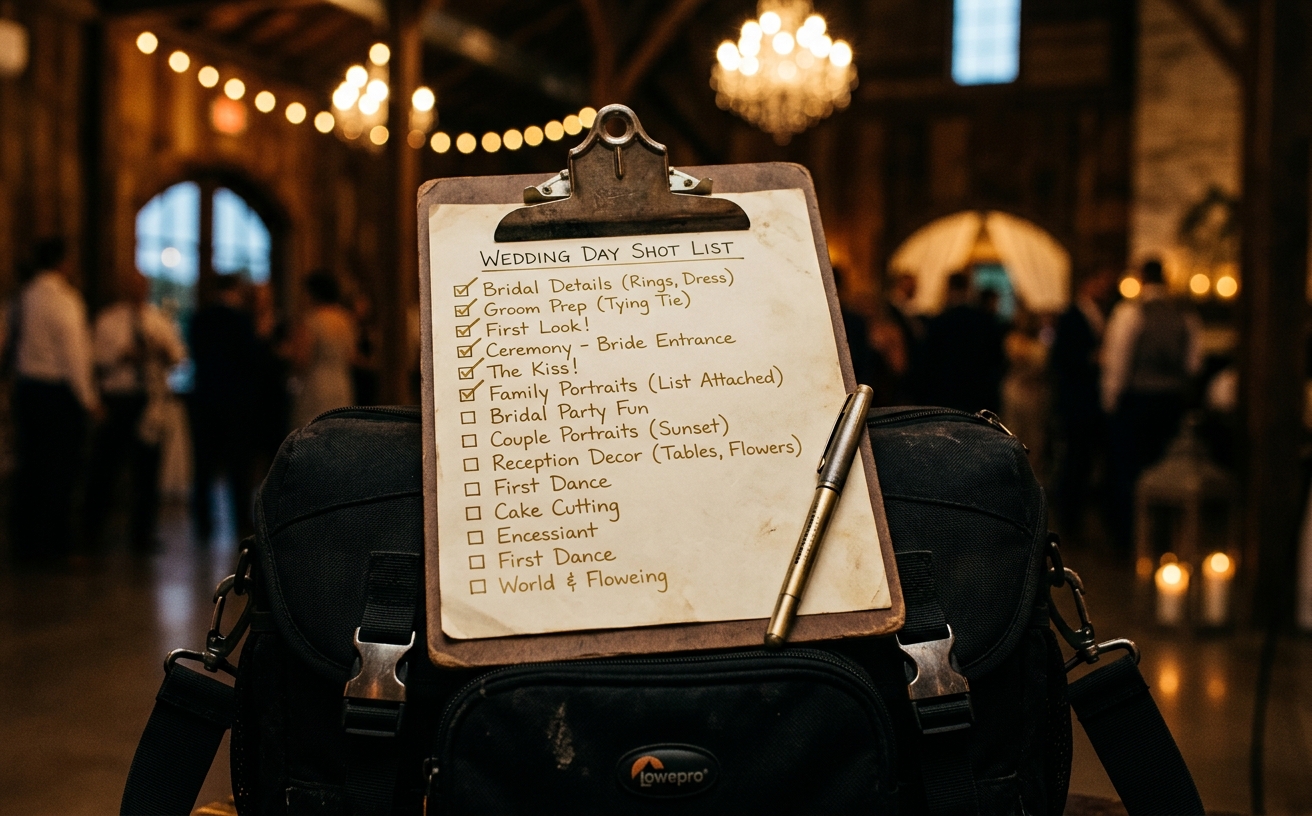 WEDDING DAY SHOT LIST
Bridal Details (Rings, Dress)
Groom Prep (Tying Tie)
First Look!
Ceremony – Bride Entrance
The Kiss!
Family Portraits (List Attached)
Bridal Party Fun
Couple Portraits (Sunset)
Reception Decor (Tables, Flowers)
First Dance
Cake Cutting
Encessiant
First Dance
World & Floweing
Lowepro